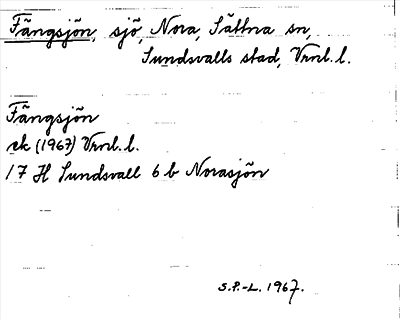 Fängsjön, sjö, Nora, Sättna sn,
Sundsvalls stad, Vrnl. l.
Fängsjön
ek (1967) Vrnl. l.
17 H Sundsvall 6 b Norasjön
S.P.-L. 1967.